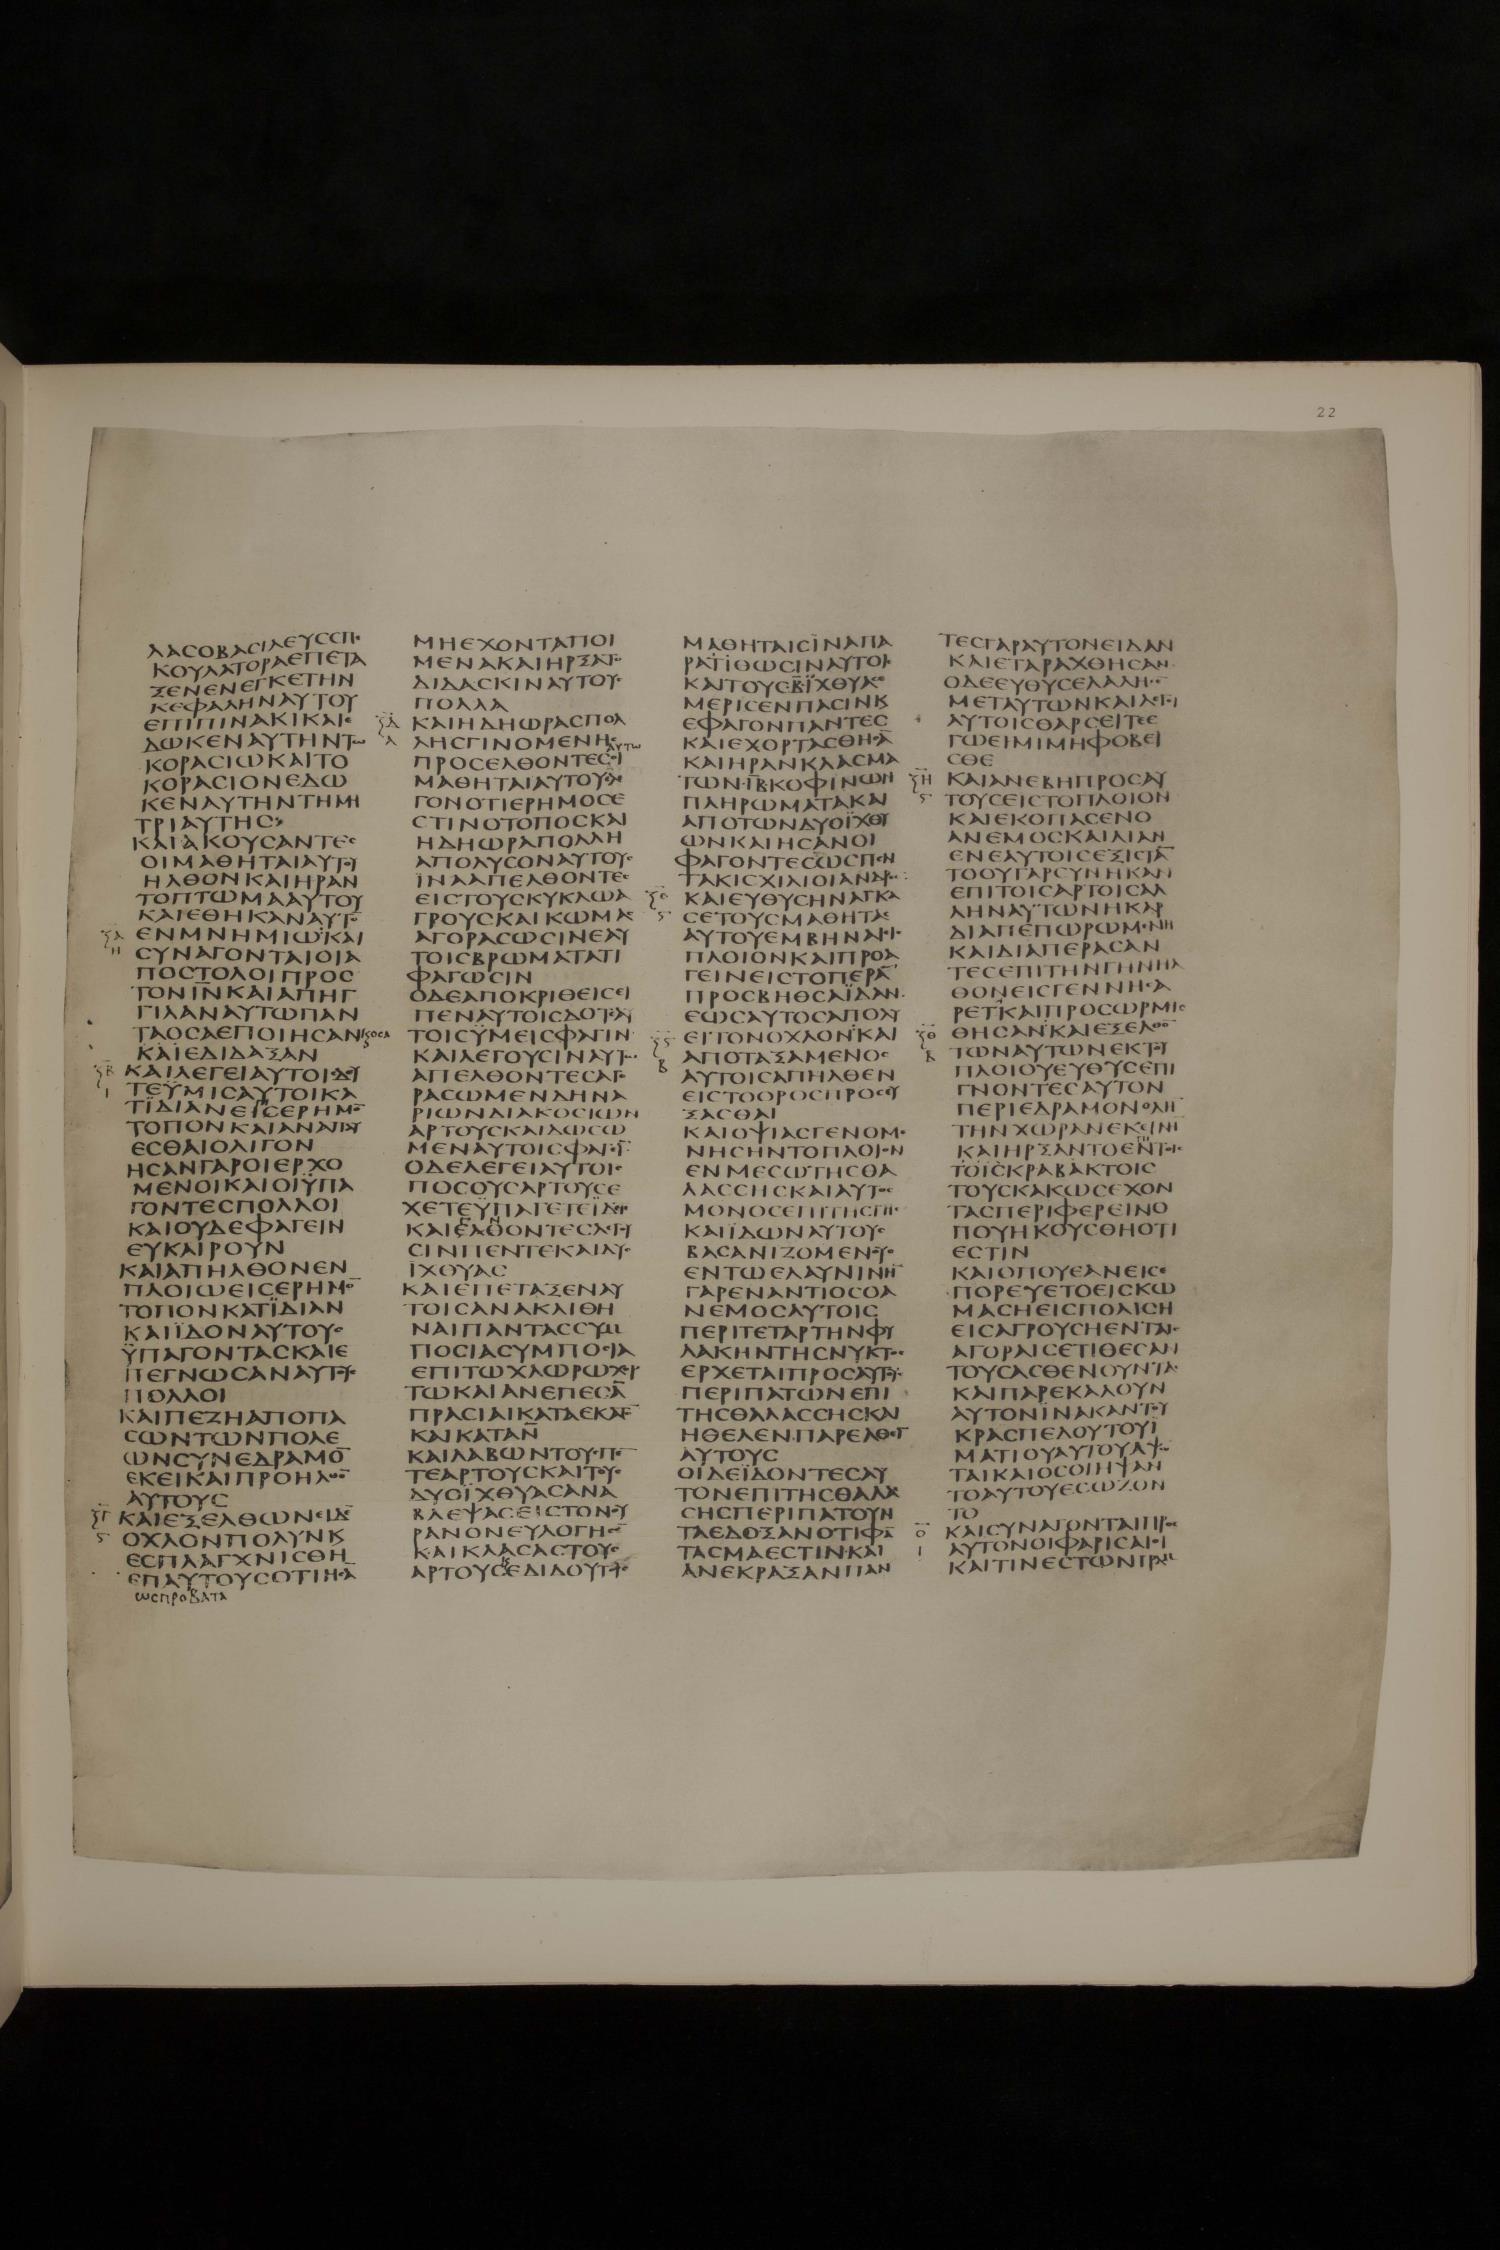 22
ΛΑCΟΒΑCΙΛΕΥCCΠΕ
ΚΟΥΛΑΤΟΡΑΕΠΕΤΑ
ΞΕΝΕΝΕΓΚΕΤΗΝ
ΚΕΦΑΛΗΝΑΥΤΟΥ
ΕΠΙΠΙΝΑΚΙΚΑΙΕ
ΔΩΚΕΝΑΥΤΗΝΤΩ
ΚΟΡΑCΙΩΚΑΙΤΟ
ΚΟΡΑCΙΟΝΕΔΩ
ΚΕΝΑΥΤΗΝΤΗΜΗ
ΤΡΙΑΥΤΗC
ΚΑΙΑΚΟΥCΑΝΤΕC
ΟΙΜΑΘΗΤΑΙΑΥΤΟΥ
ΗΛΘΟΝΚΑΙΗΡΑΝ
ΤΟΠΤΩΜΑΑΥΤΟΥ
ΚΑΙΕΘΗΚΑΝΑΥΤΟ̅
ΕΝΜΝΗΜΙΩΚΑΙ
CΥΝΑΓΟΝΤΑΙΟΙΑ
ΠΟCΤΟΛΟΙΠΡΟC
ΤΟΝΙ̅Ν̅ΚΑΙΑΠΗΓ
ΓΙΛΑΝΑΥΤΩΠΑΝ
ΤΑΟCΑΕΠΟΙΗCΑΝ
ΚΑΙΕΔΙΔΑΞΑΝ
ΚΑΙΛΕΓΕΙΑΥΤΟΙCΔΕΥ
ΤΕΫΜΙCΑΥΤΟΙΚΑ
ΤΪΔΙΑΝΕΙCΕΡΗΜΟ̅
ΤΟΠΟΝΚΑΙΑΝΑΠΑΥ
ΕCΘΑΙΟΛΙΓΟΝ
ΗCΑΝΓΑΡΟΙΕΡΧΟ
ΜΕΝΟΙΚΑΙΟΙΫΠΑ
ΓΟΝΤΕCΠΟΛΛΟΙ
ΚΑΙΟΥΔΕΦΑΓΕΙΝ
ΕΥΚΑΙΡΟΥΝ
ΚΑΙΑΠΗΛΘΟΝΕΝ
ΠΛΟΙΩΕΙCΕΡΗΜΟ̅
ΤΟΠΟΝΚΑΤΪΔΙΑΝ
ΚΑΙΪΔΟΝΑΥΤΟΥC
ΫΠΑΓΟΝΤΑCΚΑΙΕ
ΠΕΓΝΩCΑΝΑΥΤΟΥC
ΠΟΛΛΟΙ
ΚΑΙΠΕΖΗΑΠΟΠΑ
CΩΝΤΩΝΠΟΛΕ
ΩΝCΥΝΕΔΡΑΜΟ̅
ΕΚΕΙΚΑΙΠΡΟΗΛΘΟ̅
ΑΥΤΟΥC
ΚΑΙΕΞΕΛΘΩΝΕΙΔΕ̅
ΟΧΛΟΝΠΟΛΥΝΚ
ΕCΠΛΑΓΧΝΙCΘΗ
ΕΠΑΥΤΟΥCΟΤΙΗCΑ̅
ΩCΠΡΟΒΑΤΑ
ΜΗΕΧΟΝΤΑΠΟΙ
ΜΕΝΑΚΑΙΗΡΞΑΤΟ
ΔΙΔΑCΚΙΝΑΥΤΟΥC
ΠΟΛΛΑ
ΚΑΙΗΔΗΩΡΑCΠΟΛ
ΛΗCΓΙΝΟΜΕΝΗC
ΑΥΤΩ
ΠΡΟCΕΛΘΟΝΤΕCΟΙ
ΜΑΘΗΤΑΙΑΥΤΟΥΕΛΕ
ΓΟΝΟΤΙΕΡΗΜΟCΕ
CΤΙΝΟΤΟΠΟCΚΑΙ
ΗΔΗΩΡΑΠΟΛΛΗ
ΑΠΟΛΥCΟΝΑΥΤΟΥC
ΪΝΑΑΠΕΛΘΟΝΤΕC
ΕΙCΤΟΥCΚΥΚΛΩΑ
ΓΡΟΥCΚΑΙΚΩΜΑC
ΑΓΟΡΑCΩCΙΝΕΑΥ
ΤΟΙCΒΡΩΜΑΤΑΤΙ
ΦΑΓΩCΙΝ
ΟΔΕΑΠΟΚΡΙΘΕΙCΕΙ
ΠΕΝΑΥΤΟΙCΔΟΤΑΥ
ΤΟΙCΫΜΕΙCΦΑΓΙΝ
ΚΑΙΛΕΓΟΥCΙΝΑΥΤΩ
ΑΠΕΛΘΟΝΤΕCΑΓΟ
ΡΑCΩΜΕΝΔΗΝΑ
ΡΙΩΝΔΙΑΚΟCΙΩΝ
ΑΡΤΟΥCΚΑΙΔΩCΩ
ΜΕΝΑΥΤΟΙCΦΑΓΕΙ̅
ΟΔΕΛΕΓΕΙΑΥΤΟΙC
ΠΟCΟΥCΑΡΤΟΥCΕ
ΧΕΤΕΫΠΑΓΕΤΕΪΔΕΤΕ
ΚΑΙΕΛΘΟΝΤΕCΛΕΓΟΥ
CΙΝΠΕΝΤΕΚΑΙΔΥΟ
ΪΧΘΥΑC
ΚΑΙΕΠΕΤΑΞΕΝΑΥ
ΤΟΙCΑΝΑΚΛΙΘΗ
ΝΑΙΠΑΝΤΑCCΥΜ
ΠΟCΙΑCΥΜΠΟCΙΑ
ΕΠΙΤΩΧΛΩΡΩΧΟΡ
ΤΩΚΑΙΑΝΕΠΕCΑ̅
ΠΡΑCΙΑΙΚΑΤΑΕΚΑΤΟ̅
ΚΑΙΚΑΤΑΝ̅
ΚΑΙΛΑΒΩΝΤΟΥCΠΕ̅
ΤΕΑΡΤΟΥCΚΑΙΤΟΥC
ΔΥΟΪΧΘΥΑCΑΝΑ
ΒΛΕΨΑCΕΙCΤΟΝΟΥ
ΡΑΝΟΝΕΥΛΟΓΗCΕ̅
ΚΑΙΚΛΑCΑCΤΟΥC
ΑΡΤΟΥCΕΔΙΔΟΥΤΟΙC
ΜΑΘΗΤΑΙCΪΝΑΠΑ
ΡΑΤΙΘΩCΙΝΑΥΤΟΙC
ΚΑΙΤΟΥCΒ̅ΪΧΘΥΑC
ΜΕΡΙCΕΝΠΑCΙΝΚ
ΕΦΑΓΟΝΠΑΝΤΕC
ΚΑΙΕΧΟΡΤΑCΘΗCΑ̅
ΚΑΙΗΡΑΝΚΛΑCΜΑ
ΤΩΝΙ̅Β̅ΚΟΦΙΝΩΝ
ΠΛΗΡΩΜΑΤΑΚΑΙ
ΑΠΟΤΩΝΔΥΟΪΧΘΥ
ΩΝΚΑΙΗCΑΝΟΙ
ΦΑΓΟΝΤΕCΩCΠΕΝ
ΤΑΚΙCΧΙΛΙΟΙΑΝΔΡΕC
ΚΑΙΕΥΘΥCΗΝΑΓΚΑ
CΕΤΟΥCΜΑΘΗΤΑC
ΑΥΤΟΥΕΜΒΗΝΑΙΕΙC
ΠΛΟΙΟΝΚΑΙΠΡΟΑ
ΓΕΙΝΕΙCΤΟΠΕΡΑ̅
ΠΡΟCΒΗΘCΑΪΔΑΝ
ΕΩCΑΥΤΟCΑΠΟΛΥ
ΕΙΤΟΝΟΧΛΟΝΚΑΙ
ΑΠΟΤΑΞΑΜΕΝΟC
ΑΥΤΟΙCΑΠΗΛΘΕΝ
ΕΙCΤΟΟΡΟCΠΡΟCΕΥ
ΞΑCΘΑΙ
ΚΑΙΟΨΙΑCΓΕΝΟΜΕ
ΝΗCΗΝΤΟΠΛΟΙΟΝ
ΕΝΜΕCΩΤΗCΘΑ
ΛΑCCΗCΚΑΙΑΥΤΟC
ΜΟΝΟCΕΠΙΤΗCΓΗC
ΚΑΙΪΔΩΝΑΥΤΟΥC
ΒΑCΑΝΙΖΟΜΕΝΟΥC
ΕΝΤΩΕΛΑΥΝΙΝΗ̅
ΓΑΡΕΝΑΝΤΙΟCΟΑ
ΝΕΜΟCΑΥΤΟΙC
ΠΕΡΙΤΕΤΑΡΤΗΝΦΥ
ΛΑΚΗΝΤΗCΝΥΚΤΟC
ΕΡΧΕΤΑΙΠΡΟCΑΥΤΟΥC
ΠΕΡΙΠΑΤΩΝΕΠΙ
ΤΗCΘΑΛΑCCΗCΚΑΙ
ΗΘΕΛΕΝΠΑΡΕΛΘΕΙ̅
ΑΥΤΟΥC
ΟΙΔΕΪΔΟΝΤΕCΑΥ
ΤΟΝΕΠΙΤΗCΘΑΛΑC
CΗCΠΕΡΙΠΑΤΟΥΝ
ΤΑΕΔΟΞΑΝΟΤΙΦΑ̅
ΤΑCΜΑΕCΤΙΝΚΑΙ
ΑΝΕΚΡΑΞΑΝΠΑΝ
ΤΕCΓΑΡΑΥΤΟΝΕΙΔΑΝ
ΚΑΙΕΤΑΡΑΧΘΗCΑΝ
ΟΔΕΕΥΘΥCΕΛΑΛΗCΕ
ΜΕΤΑΥΤΩΝΚΑΙΛΕΓΕΙ
ΑΥΤΟΙCΘΑΡCΕΙΤΕΕ
ΓΩΕΙΜΙΜΗΦΟΒΕΙ
CΘΕ
ΚΑΙΑΝΕΒΗΠΡΟCΑΥ
ΤΟΥCΕΙCΤΟΠΛΟΙΟΝ
ΚΑΙΕΚΟΠΑCΕΝΟ
ΑΝΕΜΟCΚΑΙΛΙΑΝ
ΕΝΕΑΥΤΟΙCΕΞΙCΤΑ̅
ΤΟΟΥΓΑΡCΥΝΗΚΑΝ
ΕΠΙΤΟΙCΑΡΤΟΙCΑΛ
ΛΗΝΑΥΤΩΝΗΚΑΡ
ΔΙΑΠΕΠΩΡΩΜΕΝΗ
ΚΑΙΔΙΑΠΕΡΑCΑΝ
ΤΕCΕΠΙΤΗΝΓΗΝΗΛ
ΘΟΝΕΙCΓΕΝΝΗCΑ
ΡΕΤΚΑΙΠΡΟCΩΡΜΙC
ΘΗCΑΝΚΑΙΕΞΕΛΘΟ̅
ΤΩΝΑΥΤΩΝΕΚΤΟΥ
ΠΛΟΙΟΥΕΥΘΥCΕΠΙ
ΓΝΟΝΤΕCΑΥΤΟΝ
ΠΕΡΙΕΔΡΑΜΟΝΟΛΗ̅
ΤΗΝΧΩΡΑΝΕΚΕΙΝΗ
ΚΑΙΗΡΞΑΝΤΟΕΝΤΟΙC
ΤΟΙCΚΡΑΒΑΚΤΟΙC
ΤΟΥCΚΑΚΩCΕΧΟΝ
ΤΑCΠΕΡΙΦΕΡΕΙΝΟ
ΠΟΥΗΚΟΥCΘΗΟΤΙ
ΕCΤΙΝ
ΚΑΙΟΠΟΥΕΑΝΕΙCΕ
ΠΟΡΕΥΕΤΟΕΙCΚΩ
ΜΑCΗΕΙCΠΟΛΙCΗ
ΕΙCΑΓΡΟΥCΗΕΝΤΑΙC
ΑΓΟΡΑΙCΕΤΙΘΕCΑΝ
ΤΟΥCΑCΘΕΝΟΥΝΤΑC
ΚΑΙΠΑΡΕΚΑΛΟΥΝ
ΑΥΤΟΝΪΝΑΚΑΝΤΟΥ
ΚΡΑCΠΕΔΟΥΤΟΥΪ
ΜΑΤΙΟΥΑΥΤΟΥΑΨΩ̅
ΤΑΙΚΑΙΟCΟΙΗΨΑΝ
ΤΟΑΥΤΟΥΕCΩΖΟΝ
ΤΟ
ΚΑΙCΥΝΑΓΟΝΤΑΙΠΡΟC
ΑΥΤΟΝΟΙΦΑΡΙCΑΙΟΙ
ΚΑΙΤΙΝΕCΤΩΝΓΡΑΜ